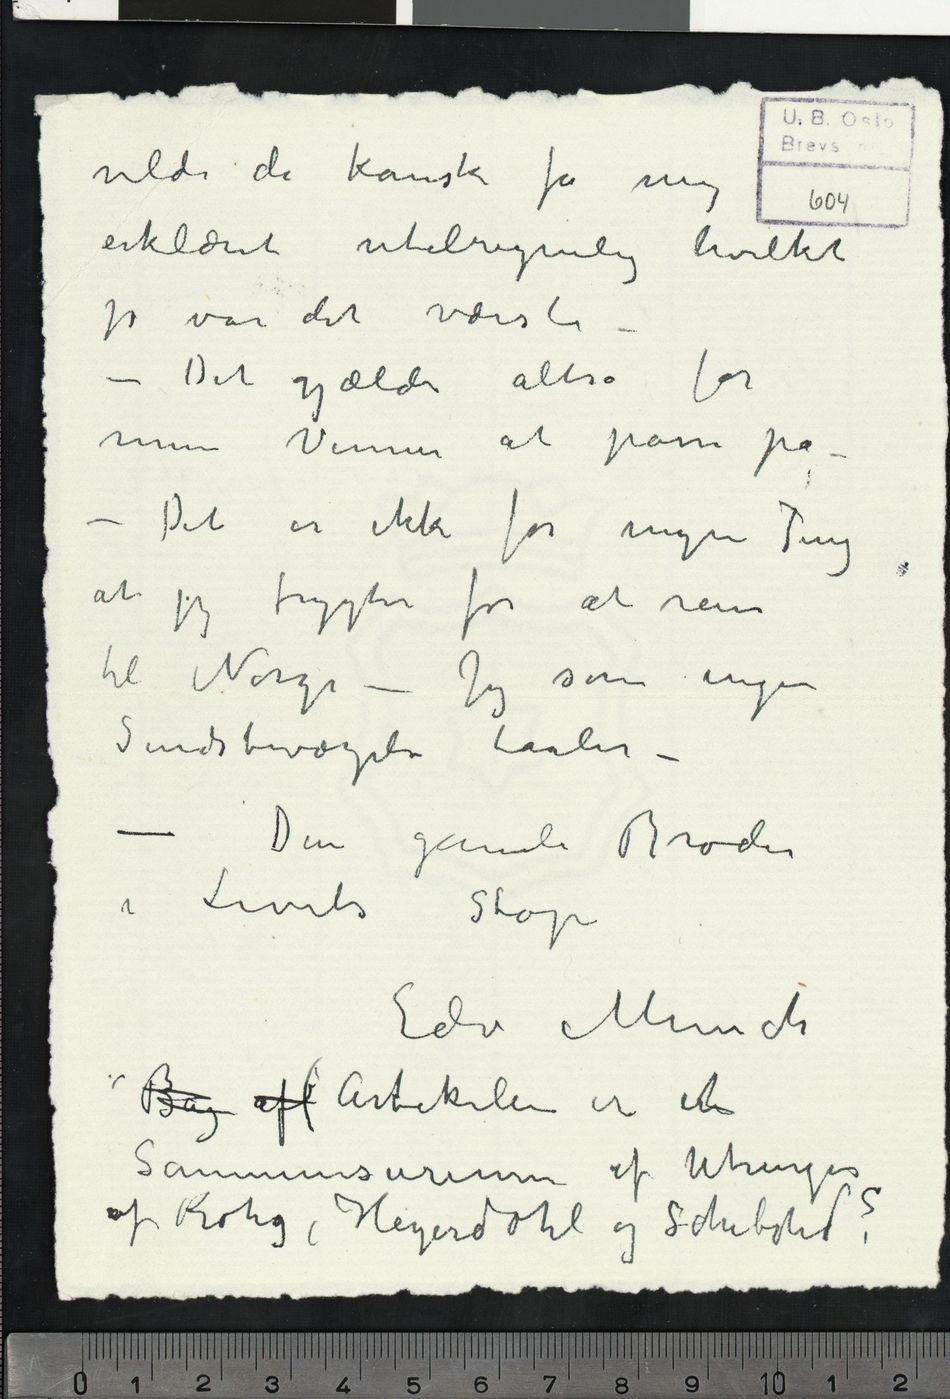 U. B. Oslo
Brevs
604
vilde de kanske få mig
erklæret utilregnelig hvilket
jo var det værste –
– Det gjælder altså for
mine Venner at passe på –
– Det er ikke for ingen Ting
at jeg frygter for at reise
til Norge – Jeg som ingen
Sindsbevægelse taaler –
– Din gamle Broder
i Livets Skole
Edv Munch
Bag af Artikelen er et
Sammensurium af Ytringer
af Krohg, Heyerdahl og Schibsted?
0 1 2 3 4 5 6 7 8 9 10 1 2